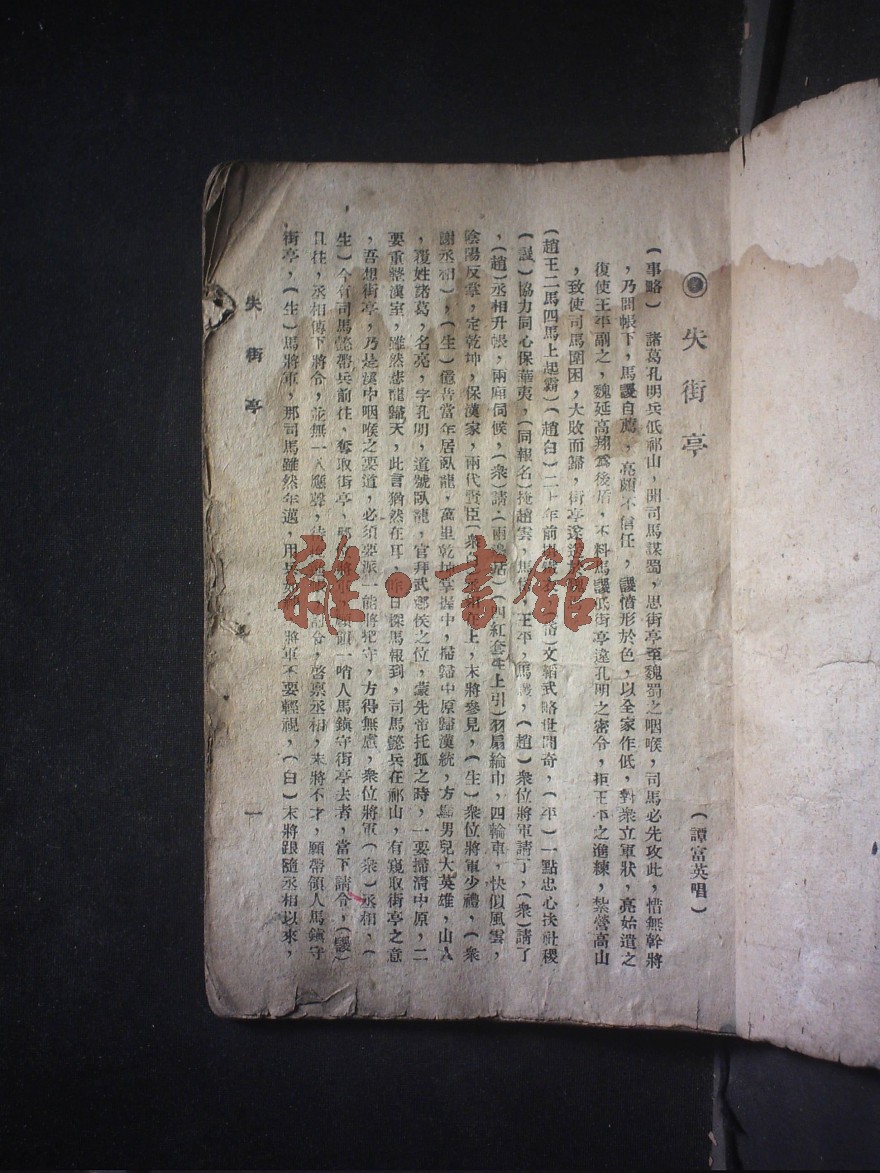 失街亭
(譚富英唱)
(事略) 諸葛孔明兵低祁山，聞司馬謀蜀，思街亭至魏蜀之咽喉，司馬必先攻此，惜無幹將
，乃問帳下，馬謖自薦，亮頗不信任，謖憤形於色，以全家作低，對衆立軍狀，亮始遣之
復使王平副之，魏延高翔爲後盾，不料馬謖低街亭違孔明之密令，拒王平之諫，紮營高山
，致使司馬圍困，大敗而歸，街亭遂
(趙王二馬四馬上起霸)(趙白)二十年前 文韜武略世間奇，(平)一點忠心扶社稷
(謖)協力同心保華夷，(同報名)俺趙雲，馬岱，王平，馬謖，(趙)衆位將軍請了，(衆)請了
，(趙)丞相升帳，兩廂伺候，(衆)請(四紅套生上引)羽扇綸巾，四輪車，快似風雲，
陰陽反掌，定乾坤，保漢家，兩代賢臣(衆 在上，末將參見，(生)衆位將軍少禮，(衆
謝丞相)，(生)憶昔當年居臥龍，萬里乾坤掌握中，掃歸中原歸漢統，方顯男兒大英雄，山人
，覆姓諸葛，名亮，字孔明，道號臥龍，官拜武鄉侯之位，蒙先帝托孤之時，一要掃清中原，二
要重整漢室，雖然悲龍歸天，此言猶然在耳，昨日探馬報到，司馬懿兵在祁山，有窺取街亭之意
，吾想街亭，乃是漢中咽喉之要道，必須要派一能將把守，方得無慮，衆位將軍(衆)丞相，(
生)今有司馬懿帶兵前往，奪取街亭，那位將軍願領一哨人馬鎮守街亭去者，當下請令，(謖)
且住，丞相傳下將令，並無一人應聲，待 討令，啓禀丞相，末將不才，願帶領人馬鎮守
街亭，(生)馬將軍，那司馬雖然年邁，用兵如神，將軍不要輕視，(白)末將跟隨丞相以來，
失街亭
一
雜·書館